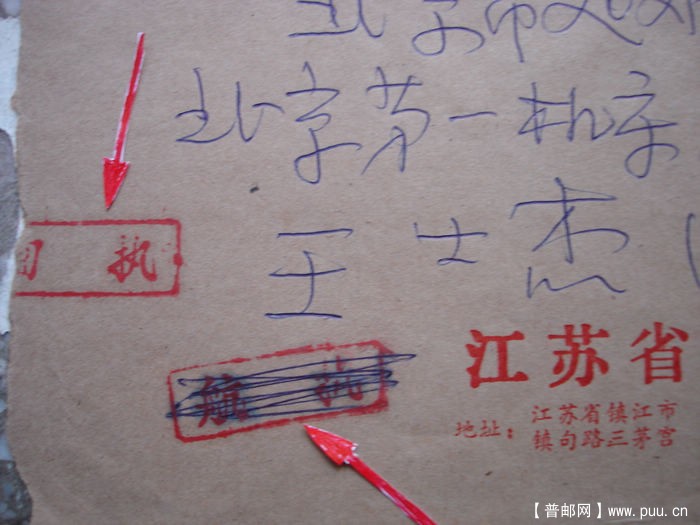 北京市
北京第一机床
王士杰
执
航 执
江苏省
地址：江苏省镇江市
镇句路三茅宫
【普邮网】www.puu.cn